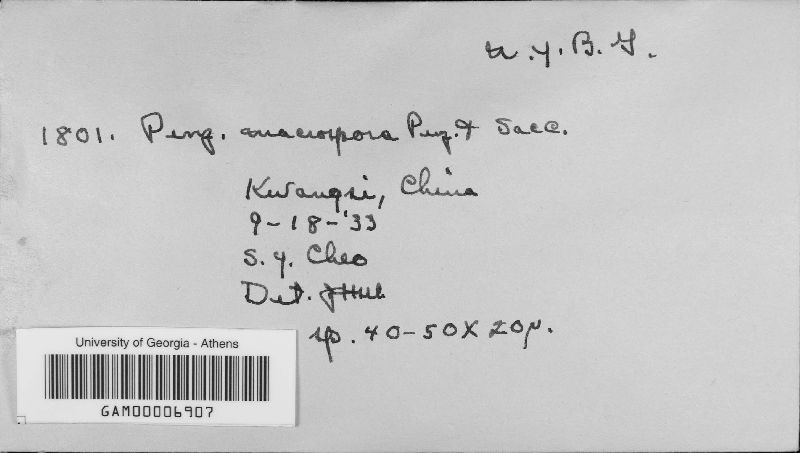 N.Y.B.G.
1801. Penz. macrospora Penz. & Sacc.
Kwangsi, China
9-18-'33
S. Y. Cheo
Det. JHM
sp. 40-50 X 20µ.
University of Georgia - Athens
GAM00006907